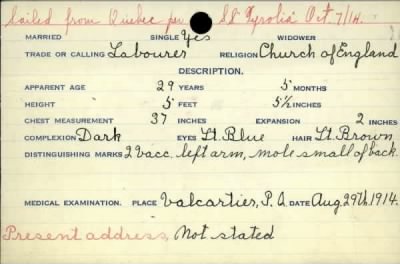 Sailed from Quebec per S.S. Tyrolia Oct 7/14.
MARRIED SINGLE Yes WIDOWER
TRADE OR CALLING Labourer RELIGION Church of England
DESCRIPTION.
APPARENT AGE 29 YEARS 5 MONTHS
HEIGHT 5 FEET 5½ INCHES
CHEST MEASUREMENT 37 INCHES EXPANSION 2 INCHES
COMPLEXION Dark EYES Lt. Blue HAIR Lt. Brown
DISTINGUISHING MARKS 2 vacc. left arm, mole small of back.
MEDICAL EXAMINATION. PLACE Valcartier, P.Q. DATE Aug. 29th 1914.
Present address, Not stated